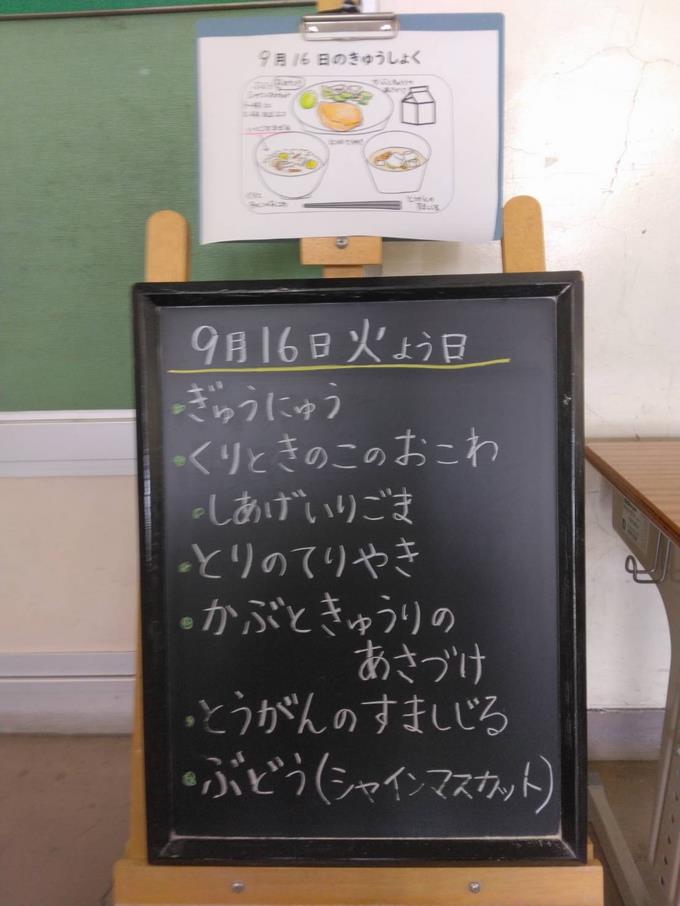 9月16日のきゅうしょく
9月16日火よう日
ぎゅうにゅう
くりときのこのおこわ
しあげいりごま
とりのてりやき
かぶときゅうりの
あさづけ
とうがんのすましじる
ぶどう(シャインマスカット)